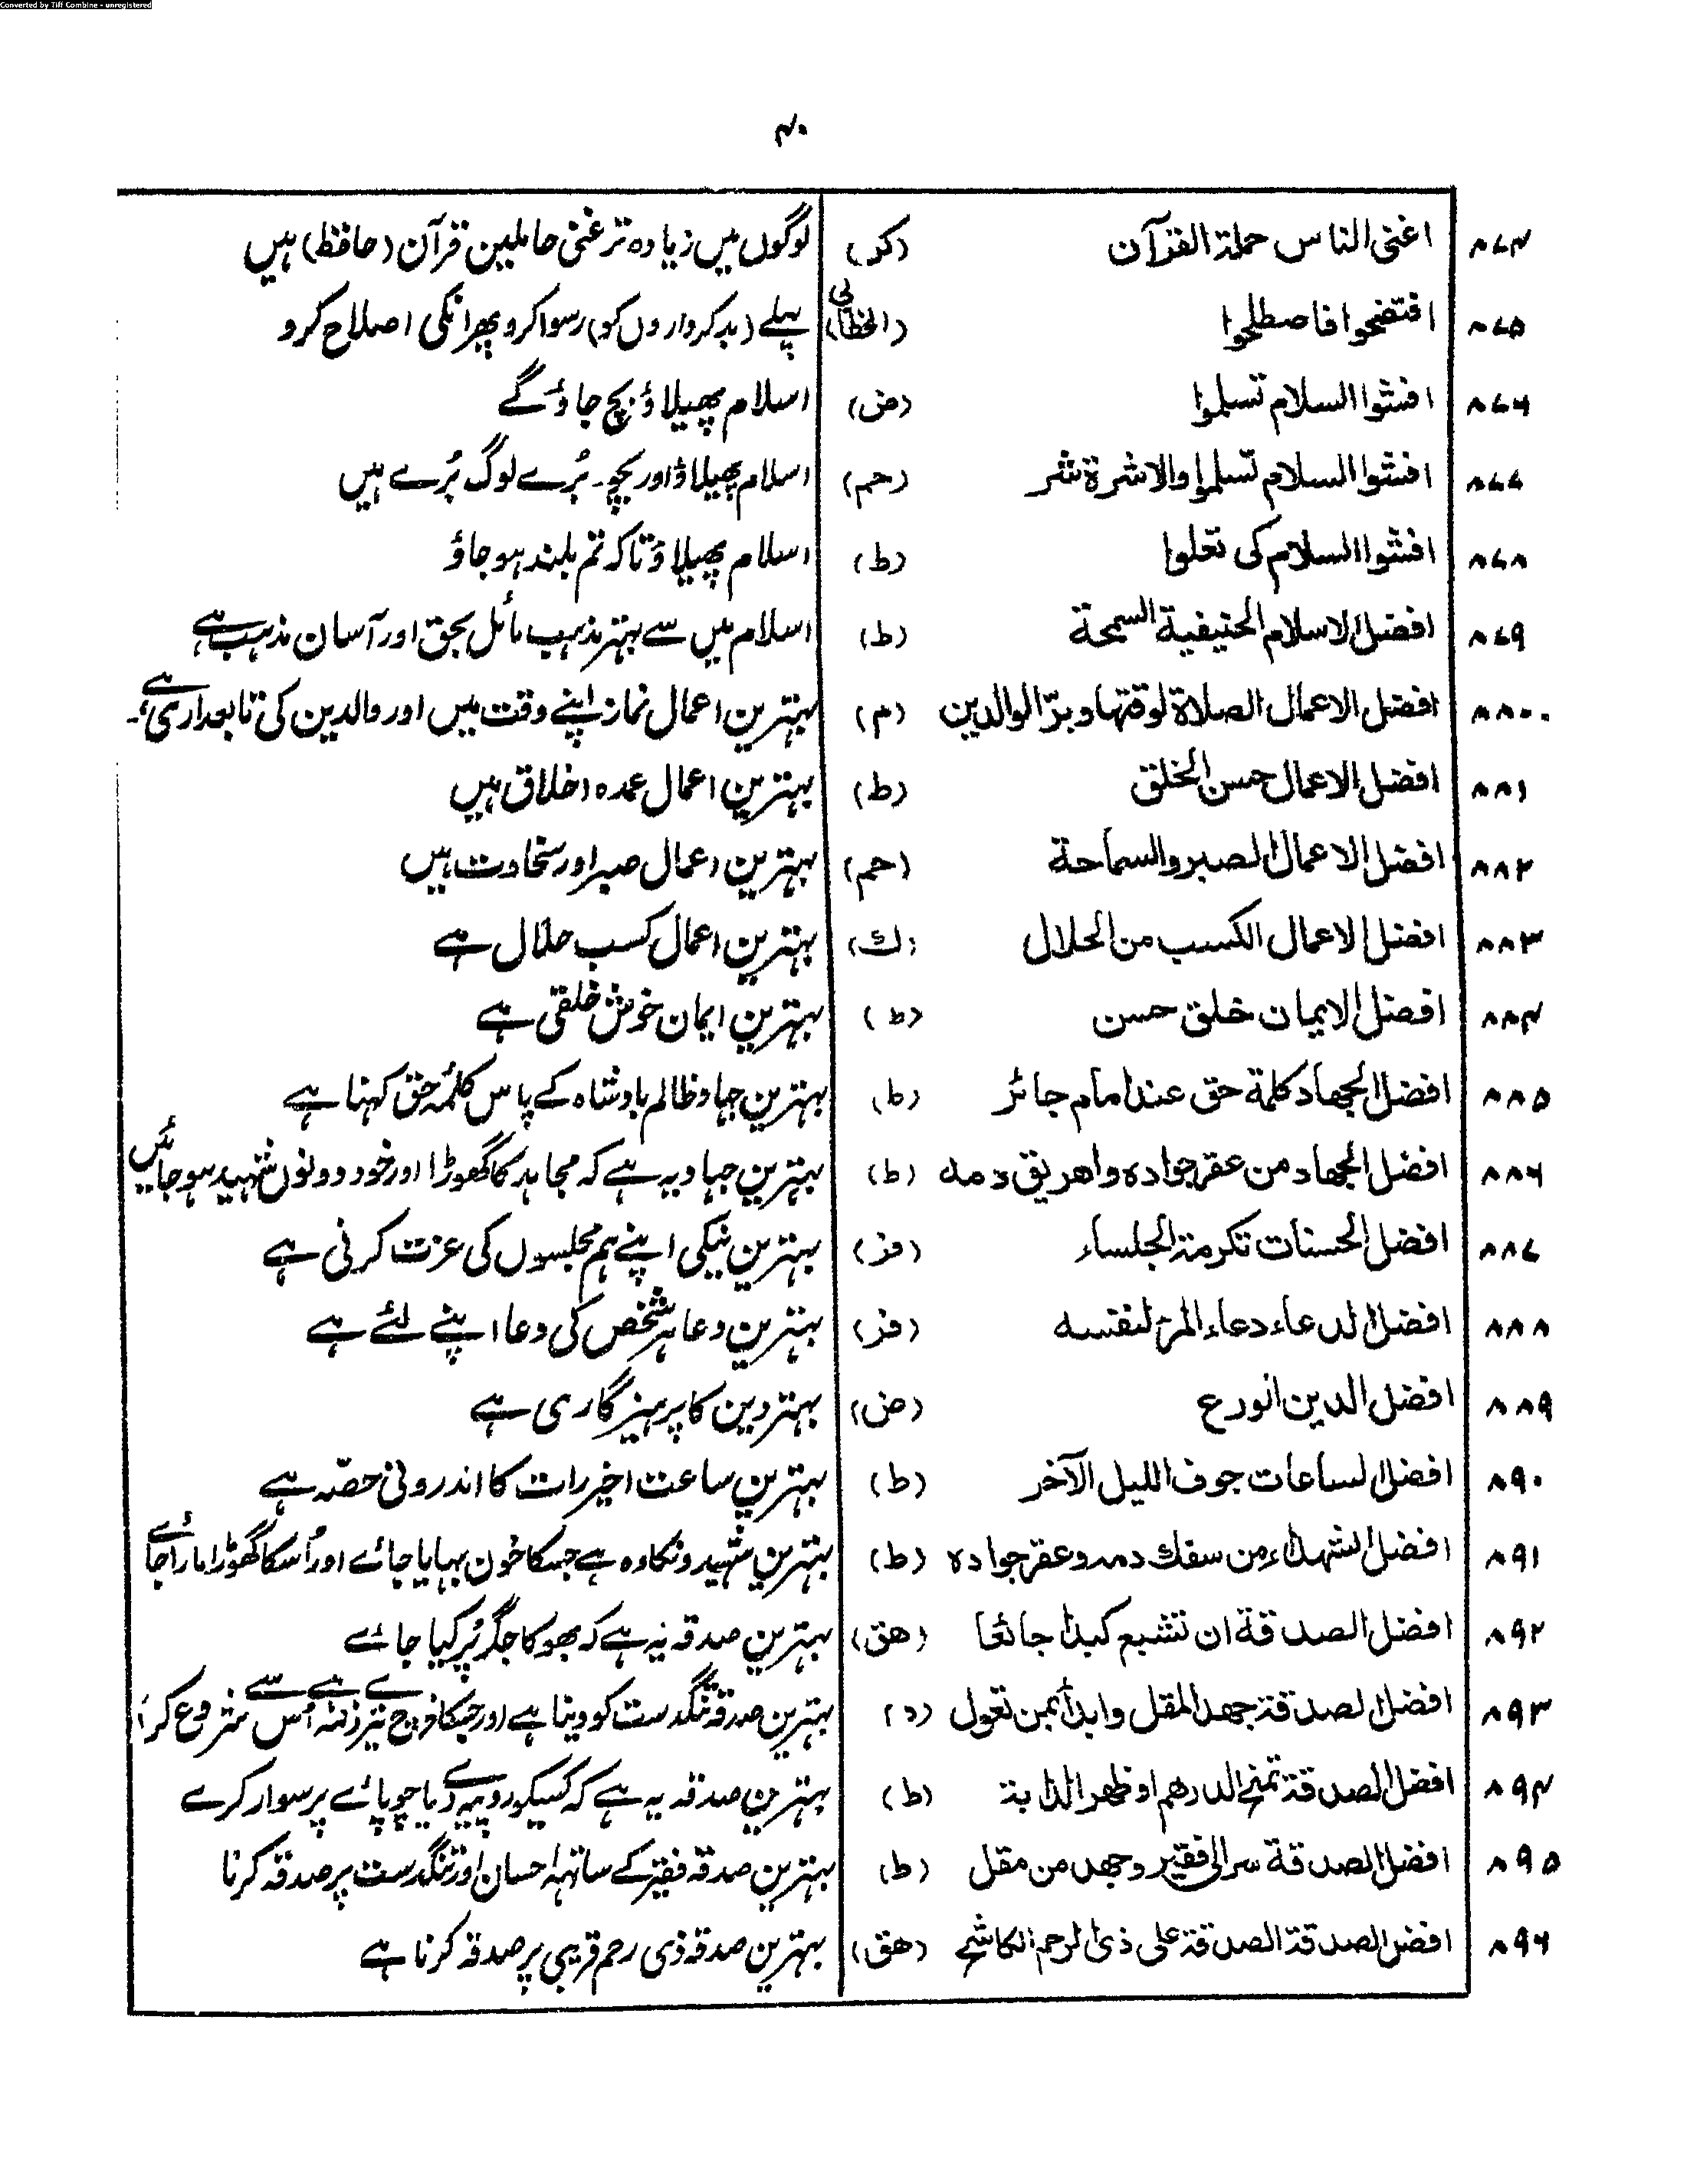 Converted by Tiff Combine - unregistered
۴۰
۸۷۴ اغنی الناس حملة القرآن (کر) لوگوں میں زیادہ تر غنی حاملین قرآن (حافظ) ہیں
۸۷۵ افتضحوا فاصطلحوا (الخطابی) پہلے (بدکرداروں کو) رسوا کرو پھر انکی اصلاح کرو
۸۷۶ افشوا السلام تسلموا (ض) اسلام پھیلاؤ بچ جاؤ گے
۸۷۷ افشوا السلام تسلموا والاشرة شر (حم) اسلام پھیلاؤ اور بچو۔ بُرے لوگ بُرے ہیں
۸۷۸ افشوا السلام کی تعلوا (ط) اسلام پھیلاؤ تاکہ تم بلند ہو جاؤ
۸۷۹ افضل الاسلام الحنیفیة السمحة (ط) اسلام میں سے بہتر مذہب مائل بحق اور آسان مذہب ہے
۸۸۰ افضل الاعمال الصلاة لوقتها و برّ الوالدین (م) بہترین اعمال نماز اپنے وقت میں اور والدین کی تابعداری ہے۔
۸۸۱ افضل الاعمال حسن الخلق (ط) بہترین اعمال عمدہ اخلاق ہیں
۸۸۲ افضل الاعمال الصبر والسماحة (حم) بہترین اعمال صبر اور سخاوت ہیں
۸۸۳ افضل الاعمال الکسب من الحلال (ك) بہترین اعمال کسب حلال ہے
۸۸۴ افضل الایمان خلق حسن (ط) بہترین ایمان خوش خلقی ہے
۸۸۵ افضل الجهاد کلمة حق عند امام جائر (ط) بہترین جہاد ظالم بادشاہ کے پاس کلمۂ حق کہنا ہے
۸۸۶ افضل الجهاد من عقر جواده واهریق دمه (ط) بہترین جہاد یہ ہے کہ مجاہد کا گھوڑا اور خود دونوں شہید ہو جائیں
۸۸۷ افضل الحسنات تکرمة الجلساء (فز) بہترین نیکی اپنے ہم مجلسوں کی عزت کرنی ہے
۸۸۸ افضل الدعاء دعاء المرء لنفسه (فز) بہترین دعا ہر شخص کی دعا اپنے لئے ہے
۸۸۹ افضل الدین الورع (ض) بہتر دین کا پرہیزگاری ہے
۸۹۰ افضل الساعات جوف اللیل الآخر (ط) بہترین ساعت اخیر رات کا اندرونی حصّہ ہے
۸۹۱ افضل الشهداء من سفك دمه وعقر جواده (ط) بہترین شہیدونکا وہ ہے جسکا خون بہایا جائے اور اُسکا گھوڑا مارا جائے
۸۹۲ افضل الصدقة ان تشبع کبدا جائعا (هق) بہترین صدقہ یہ ہے کہ بھوکا جگر پُر کیا جائے
۸۹۳ افضل الصدقة جهد المقل وابدأ بمن تعول (د) بہترین صدقہ تنگدست کو دینا ہے اور جسکا تیرے ذمہ ہے اُس سے شروع کر
۸۹۴ افضل الصدقة تمنح الدرهم او ظهر الدابة (ط) بہترین صدقہ یہ ہے کہ کسیکو روپیہ دے یا چوپائے پر سوار کرے
۸۹۵ افضل الصدقة سر الی فقیر وجهد من مقل (ط) بہترین صدقہ فقیر کے ساتہہ احسان اور تنگدست پر صدقہ کرنا
۸۹۶ افضل الصدقة الصدقة علی ذی الرحم الکاشح (هق) بہترین صدقہ ذی رحم قریبی پر صدقہ کرنا ہے